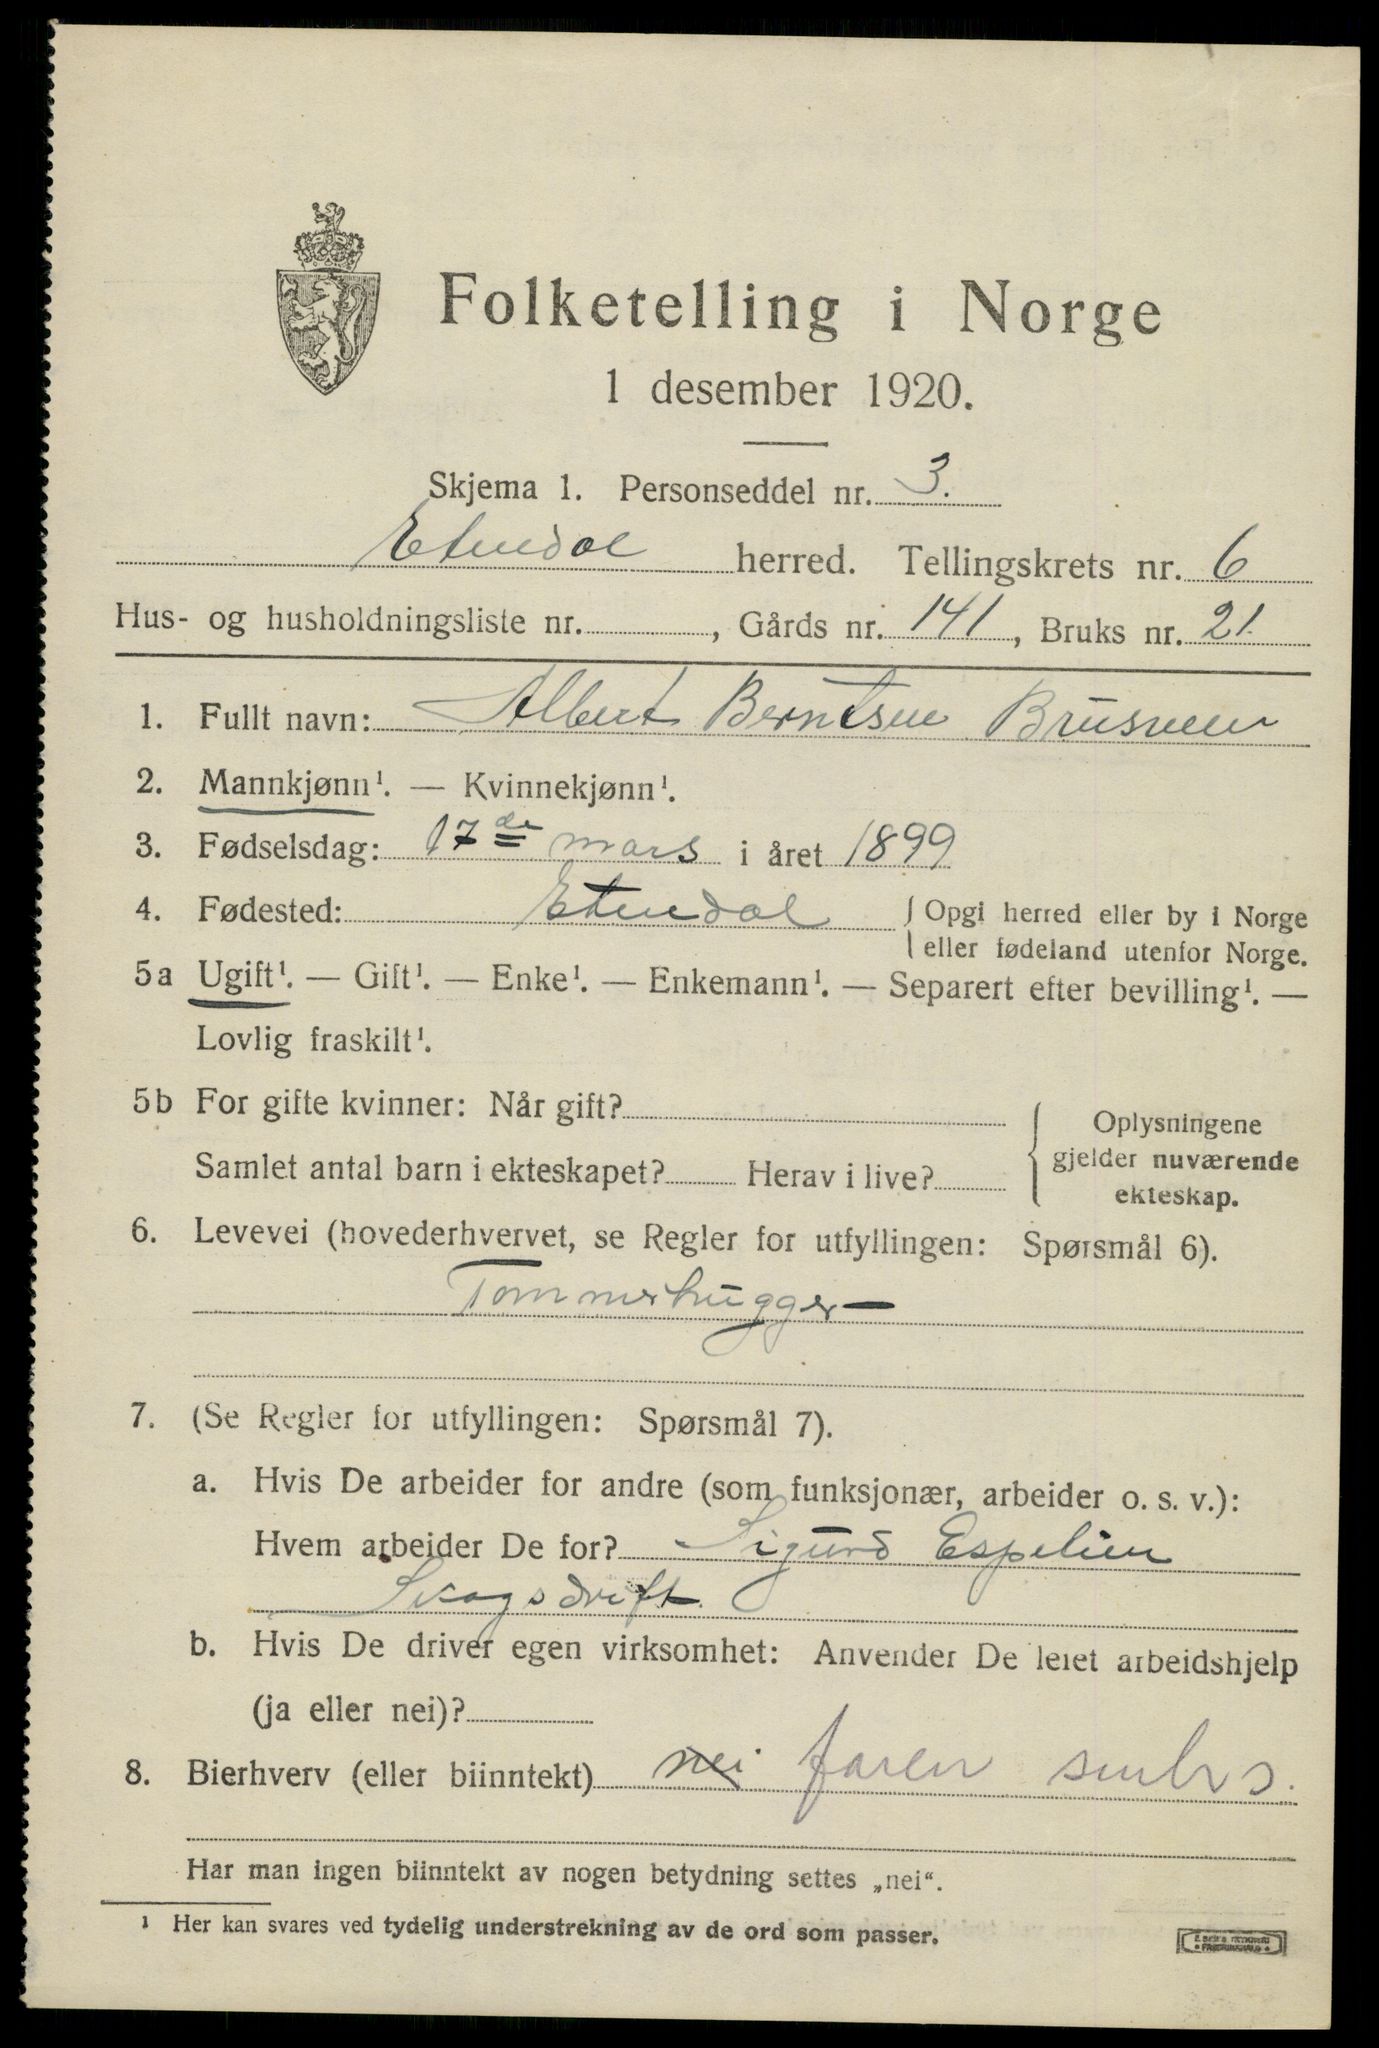 Folketelling i Norge
1 desember 1920.
Skjema 1. Personseddel nr. 3.
Etnedal herred. Tellingskrets nr. 6
Hus- og husholdningsliste nr. , Gårds nr. 141, Bruks nr. 21.
1. Fullt navn: Albert Berntsen Brusveen
2. Mannkjønn¹. — Kvinnekjønn¹.
3. Fødselsdag: 17de mars i året 1899
4. Fødested: Etnedal { Opgi herred eller by i Norge
eller fødeland utenfor Norge.
5a Ugift¹. — Gift¹. — Enke¹. — Enkemann¹. — Separert efter bevilling¹. —
Lovlig fraskilt¹.
5b For gifte kvinner: Når gift?
Samlet antal barn i ekteskapet? Herav i live?
{ Oplysningene
gjelder nuværende
ekteskap.
6. Levevei (hovederhvervet, se Regler for utfyllingen: Spørsmål 6).
Tommerhugger
7. (Se Regler for utfyllingen: Spørsmål 7).
a. Hvis De arbeider for andre (som funksjonær, arbeider o. s. v.):
Hvem arbeider De for? Sigurd Espelien
Skogsdrift.
b. Hvis De driver egen virksomhet: Anvender De leiet arbeidshjelp
(ja eller nei)?
8. Bierhverv (eller biinntekt) nei faren
Har man ingen biinntekt av nogen betydning settes „nei“.
¹ Her kan svares ved tydelig understrekning av de ord som passer.